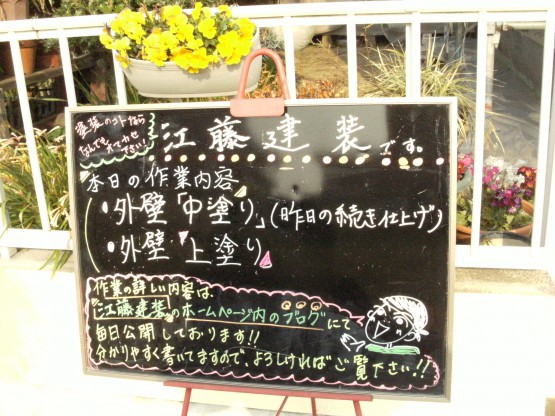 塗装のコトなら
なんでもおまかせ
下さい!
江藤建装です。
本日の作業内容
・外壁「中塗り」(昨日の続き仕上げ)
・外壁「上塗り」
作業の詳しい内容は、
江藤建装のホームページ内のブログにて
毎日公開しております!!
分かりやすく書いてますので、よろしければご覧下さい!!